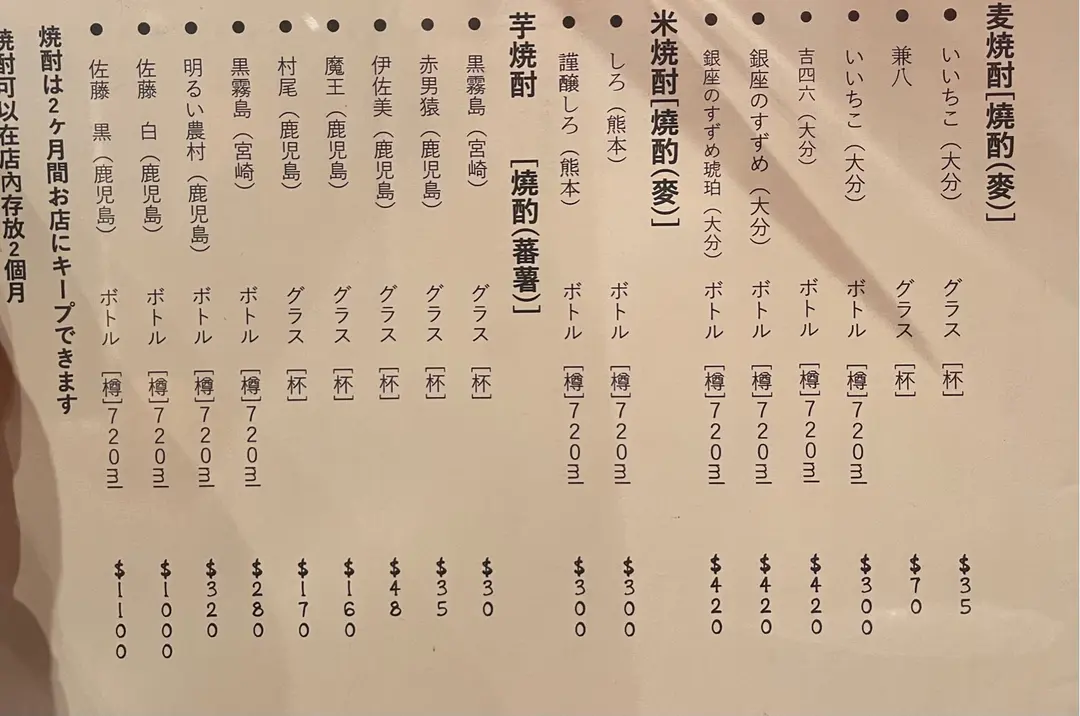 麦焼酎[燒酌(麥)]
●いいちこ（大分） グラス [杯] $35
●兼八 グラス [杯] $70
●いいちこ（大分） ボトル [樽]720ml $300
●吉四六（大分） ボトル [樽]720ml $420
●銀座のすずめ（大分） ボトル [樽]720ml $420
●銀座のすずめ琥珀（大分） ボトル [樽]720ml $420
米焼酎[燒酌(麥)]
●しろ（熊本） ボトル [樽]720ml $300
●謹醸しろ（熊本） ボトル [樽]720ml $300
芋焼酎 [燒酌(蕃薯)]
●黒霧島（宮崎） グラス [杯] $30
●赤男猿（鹿児島） グラス [杯] $35
●伊佐美（鹿児島） グラス [杯] $48
●魔王（鹿児島） グラス [杯] $160
●村尾（鹿児島） グラス [杯] $170
●黒霧島（宮崎） ボトル [樽]720ml $280
●明るい農村（鹿児島） ボトル [樽]720ml $320
●佐藤 白（鹿児島） ボトル [樽]720ml $1000
●佐藤 黒（鹿児島） ボトル [樽]720ml $1100
焼酎は2ヶ月間お店にキープできます
燒酎可以在店內存放2個月